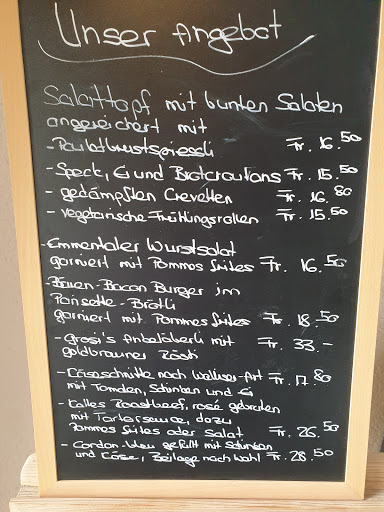 Unser Angebot
Salattopf mit bunten Salaten
angereichert mit
- Pouletbrustspiessli Fr. 16.50
- Speck, Ei und Brotcroutons Fr. 15.50
- gedämpften Crevetten Fr. 16.80
- vegetarische Frühlingsrollen Fr. 15.50
- Emmentaler Wurstsalat
garniert mit Pommes frites Fr. 16.50
- Bacon Burger im
Parisette-Brötli
garniert mit Pommes frites Fr. 18.50
- Grosi's mit Fr. 33.-
goldbrauner Rösti
- Käseschnitte nach Walliser-Art Fr. 17.80
mit Tomaten, Schinken und Ei
- Kaltes Roastbeef, rosé gebraten
mit Tartarsauce, dazu
Pommes frites oder Salat Fr. 26.50
- Cordon-bleu gefüllt mit Schinken
und Käse, Beilage nach Wahl Fr. 28.50